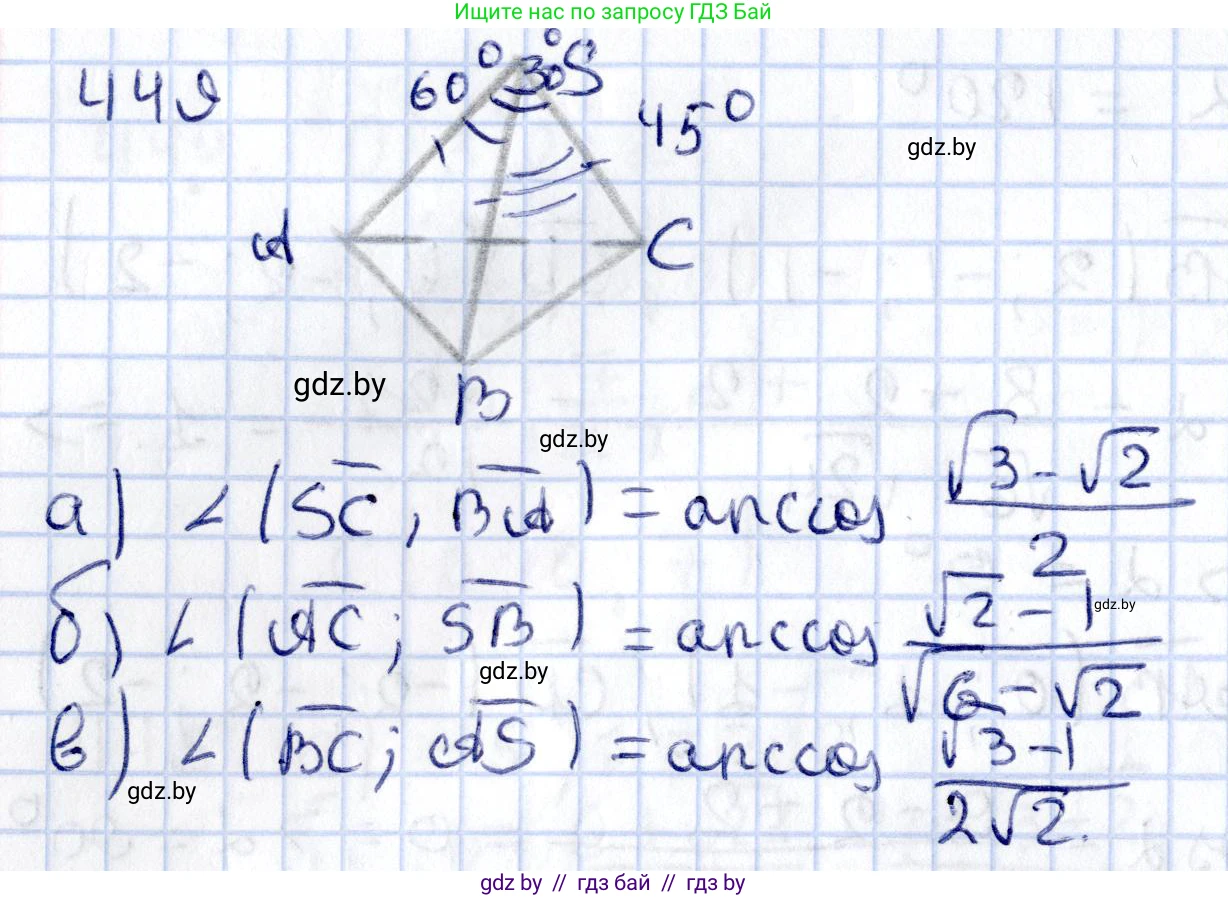 Ищите нас по запросу ГДЗ Бай
449
60° 30° S
45°
gdz.by
A C
gdz.by
B
gdz.by
а) ∠(S̅C̅, B̅A̅) = arccos (√3 - √2)/2
б) ∠(A̅C̅; S̅B̅) = arccos (√2 - 1)/√(6 - √2)
gdz.by
gdz.by
в) ∠(B̅C̅; A̅S̅) = arccos (√3 - 1)/(2√2).
gdz.by
gdz.by // гдз бай // гдз by